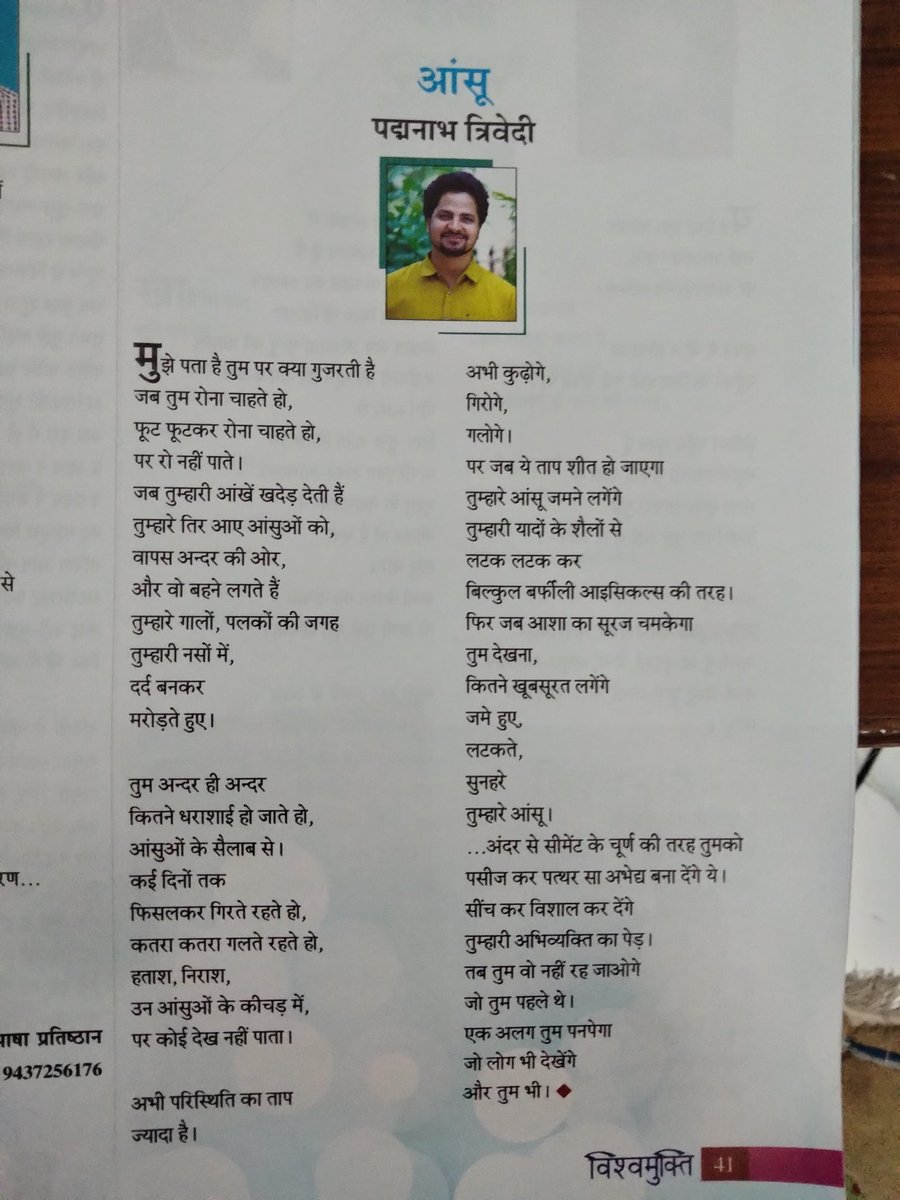 आंसू
पद्मनाभ त्रिवेदी
मुझे पता है तुम पर क्या गुजरती है
जब तुम रोना चाहते हो,
फूट फूटकर रोना चाहते हो,
पर रो नहीं पाते।
जब तुम्हारी आंखें खदेड़ देती हैं
तुम्हारे तिर आए आंसुओं को,
वापस अन्दर की ओर,
और वो बहने लगते हैं
तुम्हारे गालों, पलकों की जगह
तुम्हारी नसों में,
दर्द बनकर
मरोड़ते हुए।
तुम अन्दर ही अन्दर
कितने धराशाई हो जाते हो,
आंसुओं के सैलाब से।
कई दिनों तक
फिसलकर गिरते रहते हो,
कतरा कतरा गलते रहते हो,
हताश, निराश,
उन आंसुओं के कीचड़ में,
पर कोई देख नहीं पाता।
अभी परिस्थिति का ताप
ज्यादा है।
अभी कुढ़ोगे,
गिरोगे,
गलोगे।
पर जब ये ताप शीत हो जाएगा
तुम्हारे आंसू जमने लगेंगे
तुम्हारी यादों के शैलों से
लटक लटक कर
बिल्कुल बर्फीली आइसिकल्स की तरह।
फिर जब आशा का सूरज चमकेगा
तुम देखना,
कितने खूबसूरत लगेंगे
जमे हुए,
लटकते,
सुनहरे
तुम्हारे आंसू।
...अंदर से सीमेंट के चूर्ण की तरह तुमको
पसीज कर पत्थर सा अभेद्य बना देंगे ये।
सींच कर विशाल कर देंगे
तुम्हारी अभिव्यक्ति का पेड़।
तब तुम वो नहीं रह जाओगे
जो तुम पहले थे।
एक अलग तुम पनपेगा
जो लोग भी देखेंगे
और तुम भी।
से
प्रतिष्ठान
9437256176
विश्वमुक्ति 41